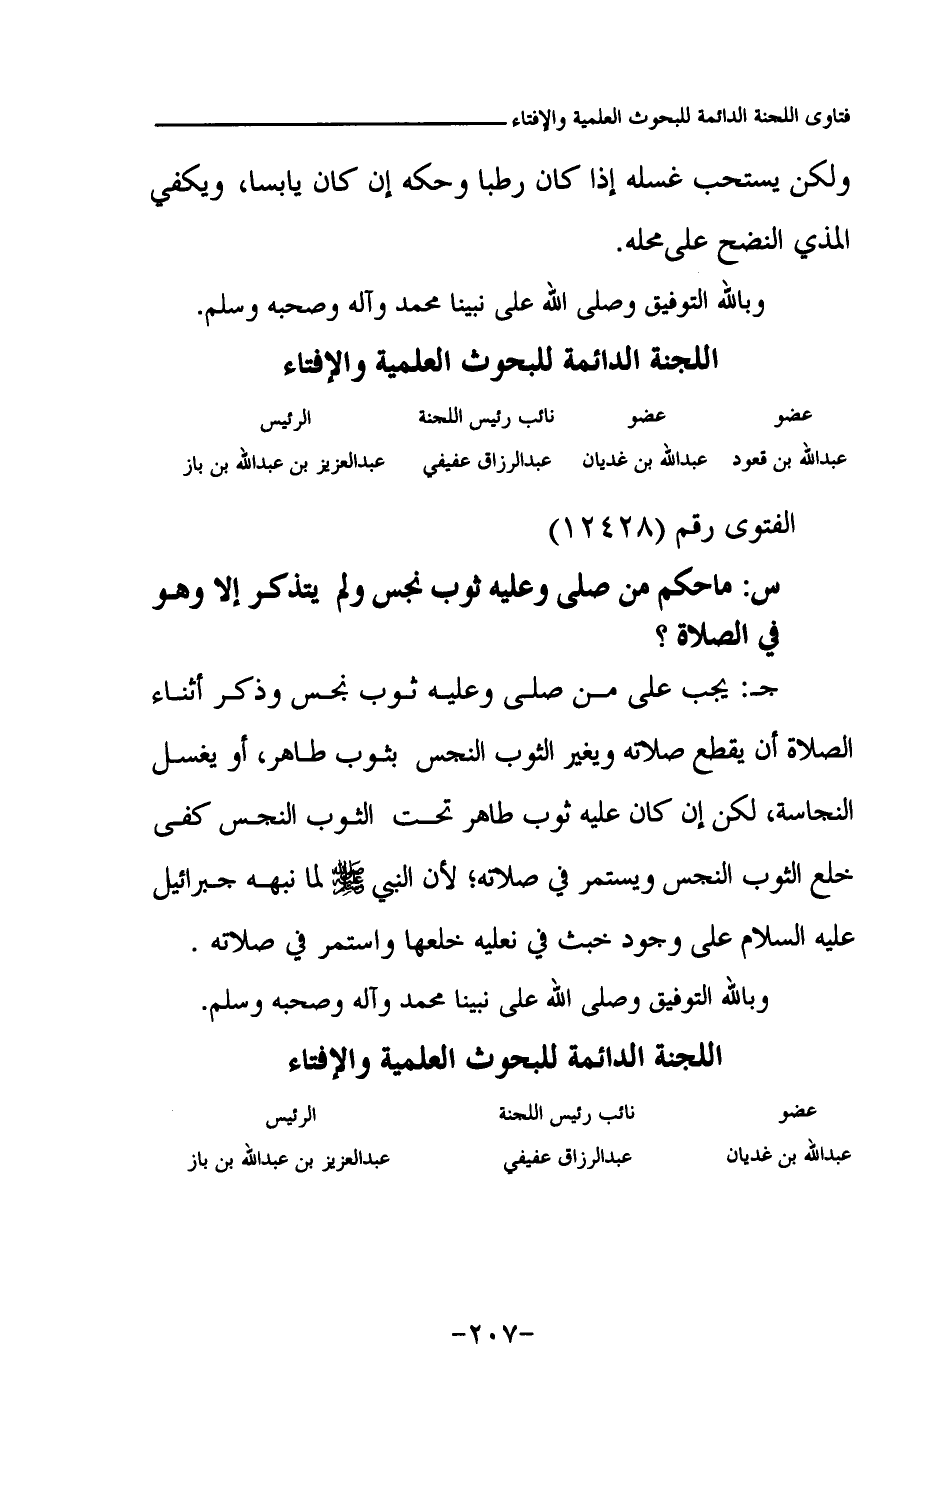 فتاوى اللجنة الدائمة للبحوث العلمية والإفتاء
ولكن يستحب غسله إذا كان رطبا وحكه إن كان يابسا، ويكفي
المذي النضح على محله.
وبالله التوفيق وصلى الله على نبينا محمد وآله وصحبه وسلم.
اللجنة الدائمة للبحوث العلمية والإفتاء
عضو عضو نائب رئيس اللجنة الرئيس
عبدالله بن قعود عبدالله بن غديان عبدالرزاق عفيفي عبدالعزيز بن عبدالله بن باز
الفتوى رقم (١٢٤٢٨)
س: ماحكم من صلى وعليه ثوب نجس ولم يتذكر إلا وهو
في الصلاة ؟
جـ: يجب على من صلى وعليه ثوب نجس وذكر أثناء
الصلاة أن يقطع صلاته ويغير الثوب النجس بثوب طاهر، أو يغسل
النجاسة، لكن إن كان عليه ثوب طاهر تحت الثوب النجس كفى
خلع الثوب النجس ويستمر في صلاته؛ لأن النبي ﷺ لما نبهه جبرائيل
عليه السلام على وجود خبث في نعليه خلعها واستمر في صلاته .
وبالله التوفيق وصلى الله على نبينا محمد وآله وصحبه وسلم.
اللجنة الدائمة للبحوث العلمية والإفتاء
عضو نائب رئيس اللجنة الرئيس
عبدالله بن غديان عبدالرزاق عفيفي عبدالعزيز بن عبدالله بن باز
-٢٠٧-